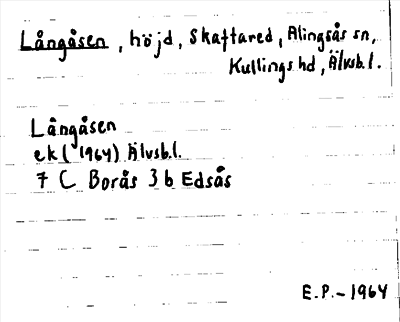 Långåsen, höjd, Skaftared, Alingsås sn,
Kullings hd, Älvsb.l.
Långåsen
ek (1964) Älvsb.l.
7 C Borås 3 b Edsås
E.P. - 1964